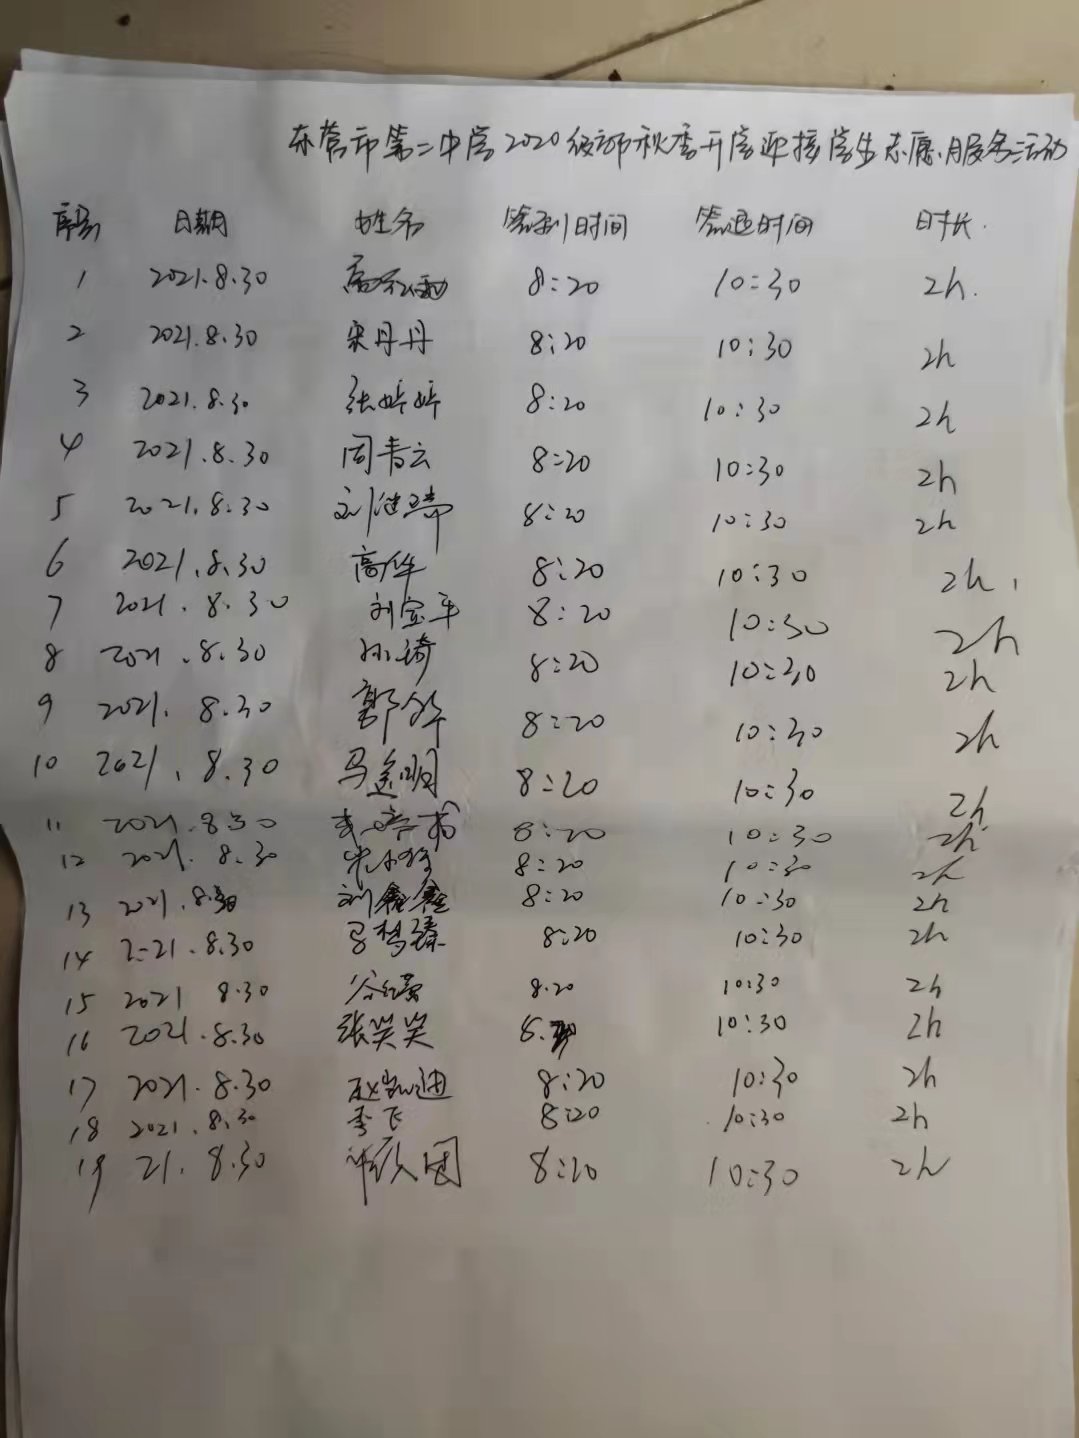 东营市第二中学2020级部秋季开学迎接学生志愿服务活动
序号 日期 姓名 签到时间 签退时间 时长.
1 2021.8.30 8:20 10:30 2h.
2 2021.8.30 宋丹丹 8:20 10:30 2h
3 2021.8.30 张婷婷 8:20 10:30 2h
4 2021.8.30 周青云 8:20 10:30 2h
5 2021.8.30 8:20 10:30 2h
6 2021.8.30 高华 8:20 10:30 2h
7 2021.8.30 刘宝平 8:20 10:30 2h
8 2021.8.30 孙琦 8:20 10:30 2h
9 2021.8.30 郭华 8:20 10:30 2h
10 2021.8.30 马逢明 8:20 10:30 2h
11 2021.8.30 8:20 10:30 2h
12 2021.8.30 8:20 10:30 2h
13 2021.8.30 刘鑫鑫 8:20 10:30 2h
14 2021.8.30 马梦臻 8:20 10:30 2h
15 2021 8.30 8.20 10:30 2h
16 2021.8.30 张笑笑 10:30 2h
17 2021.8.30 赵凯迪 8:20 10:30 2h
18 2021.8.30 李飞 8:20 10:30 2h
19 21.8.30 8:20 10:30 2h